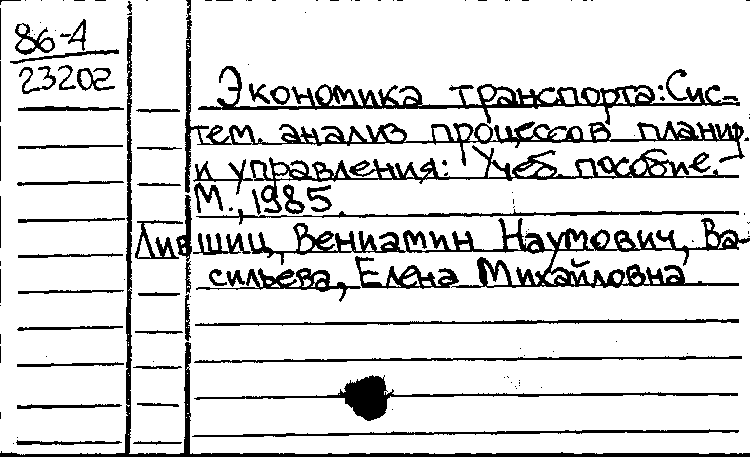 86-4
23202
Экономика транспорта: Сис-
тем. анализ процессов планир.
и управления: Учеб. пособие. -
М., 1985.
Лившиц, Вениамин Наумович, Ва-
сильева, Елена Михайловна.